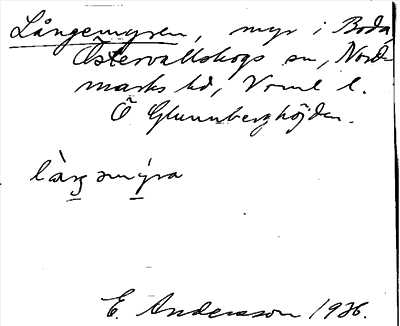 Långemyren, myr i Boda
Östervallskogs sn, Nord-
marks hd, Vrml l.
Ö Glumberghöjden.
E. Andersson 1936.